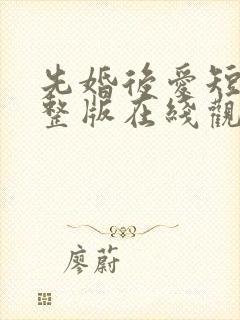 先婚後愛短
整版在綫觀
廖蔚